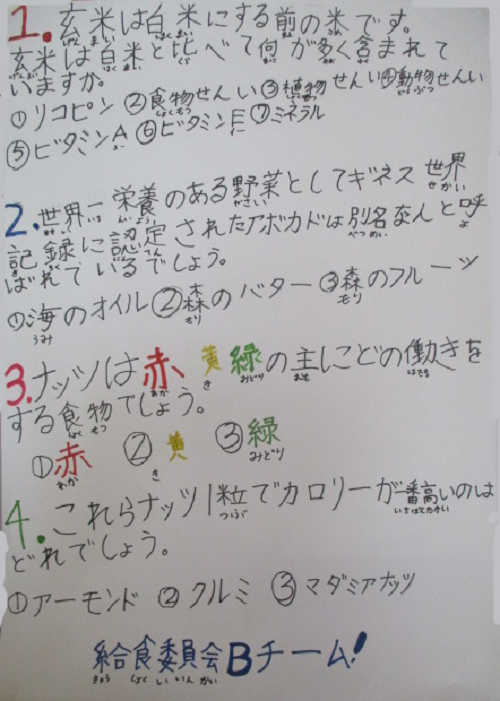 1. 玄米は白米にする前の米です。
玄米は白米と比べて何が多く含まれて
いますか。
①リコピン ②食物せんい ③植物せんい ④動物せんい
⑤ビタミンA ⑥ビタミンE ⑦ミネラル
2. 世界一栄養のある野菜としてギネス世界
記録に認定されたアボカドは別名なんと呼
ばれているでしょう。
①海のオイル ②森のバター ③森のフルーツ
3. ナッツは赤 黄 緑の主にどの働きを
する食物でしょう。
①赤 ②黄 ③緑
4. これらナッツ1粒でカロリーが一番高いのは
どれでしょう。
①アーモンド ②クルミ ③マダミアナッツ
給食委員会Bチーム!